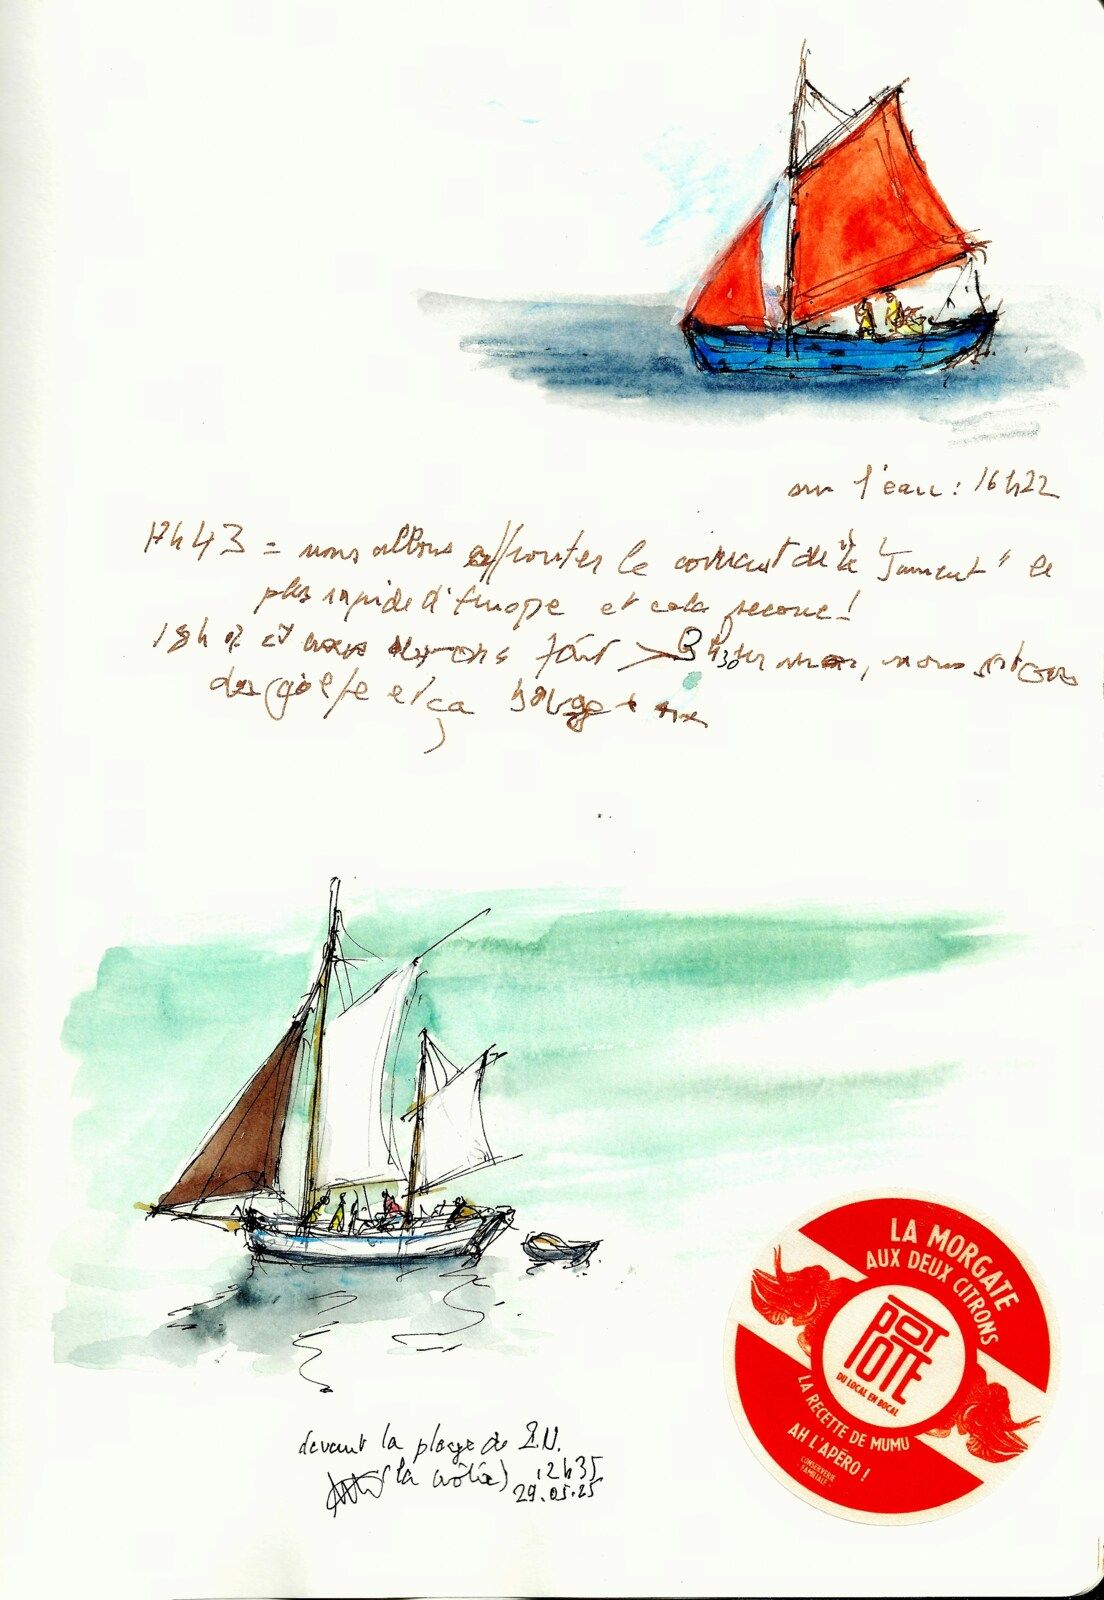 sur l'eau : 16h22
17h43 = nous allons affronter le courant de la "Jument" le
plus rapide d'Europe et cela secoue !
18h et nous, nous sortons
du golfe et ça bouge
devant la plage de
(la côte) 12h35
29.05.25
LA MORGATE
AUX DEUX CITRONS
POT
POTE
DU LOCAL EN BOCAL
LA RECETTE DE MUMU
AH L'APÉRO !
CONSERVERIE
FAMILIALE